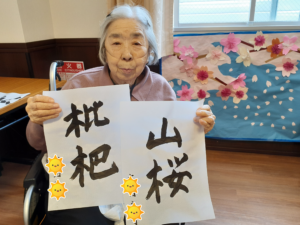 枇杷
山桜